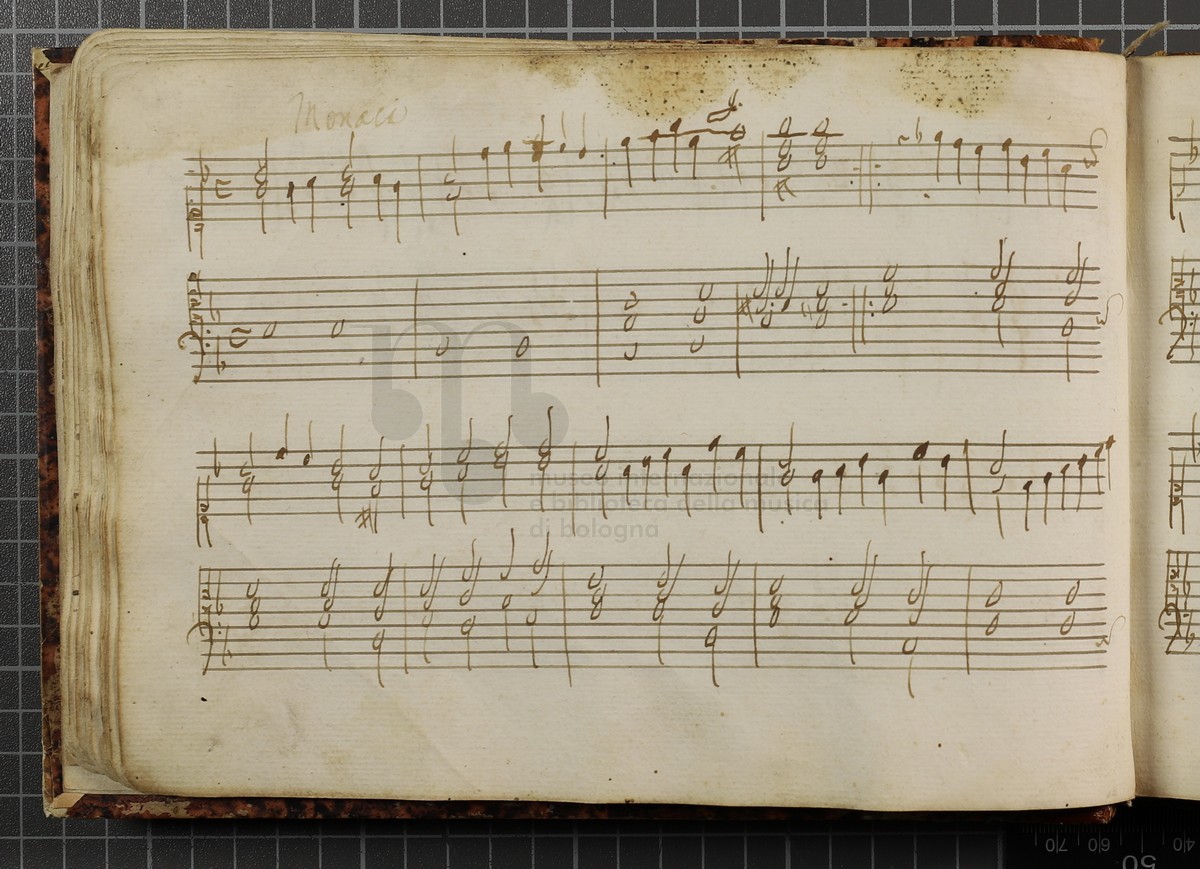 Monaca
museo internazionale
e biblioteca della musica
di bologna
70 60 50 40